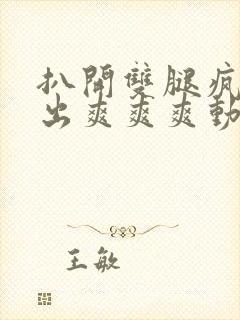 扒開雙腿瘋
出爽爽爽動
王敏